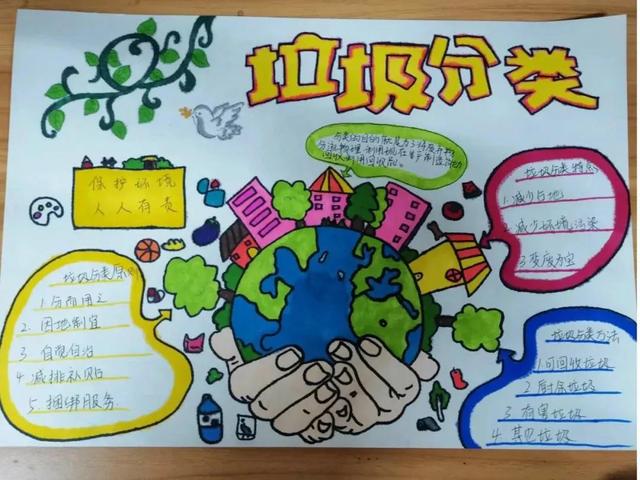 垃圾分类
分类的目的就是为了将废弃物
分流处理,利用现在生产制造能力
回收利用回收品。
保护环境
人人有责
垃圾分类原则
1.分而用之
2.因地制宜
3 自觉自治
4 减排补贴
5.捆绑服务
垃圾分类特点
1.减少占地
2.减少环境污染
3 变废为宝
垃圾分类方法
1.可回收垃圾
2 厨余垃圾
3 有害垃圾
4 其它垃圾